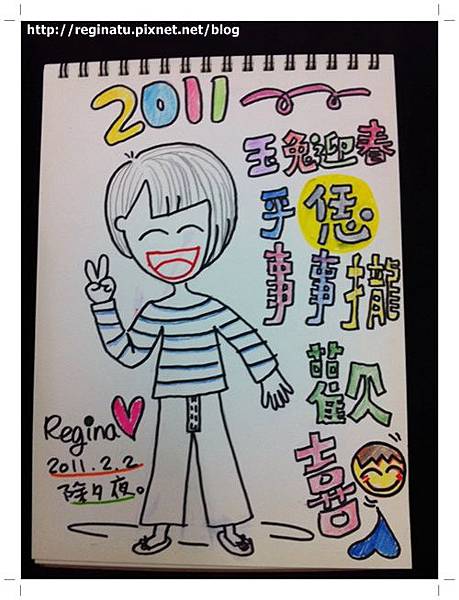 http://reginatu.pixnet.net/blog
2011
玉兔迎春
乎恁
事事攏
歡
喜
Regina
2011.2.2
除夕夜。